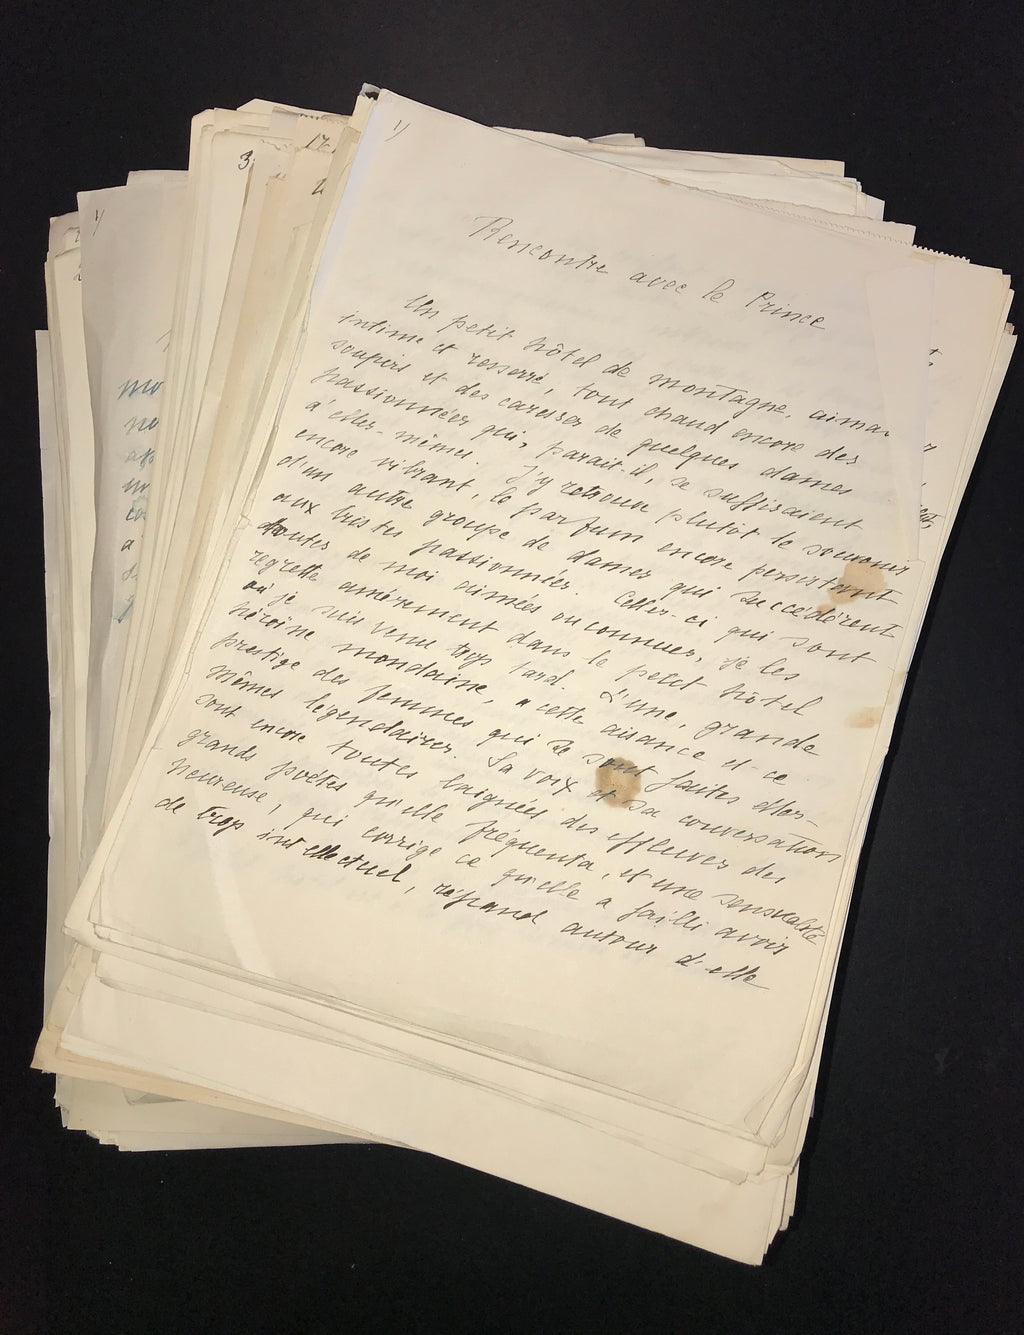 1/
Rencontre avec le Prince
Un petit hôtel de montagne, aimable
intime et resserré, tout chaud encore des
soupirs et des caresses de quelques dames
passionnées qui, parait-il, se suffisaient
à elles-mêmes. J'y retrouve plutôt le souvenir
encore vibrant, le parfum encore persistant
d'un autre groupe de dames qui succédèrent
aux tristes passionnées. Celles-ci qui sont
toutes de moi aimées ou connues, je les
regrette amèrement dans le petit hôtel
où je suis venu trop tard. L'une, grande
héroïne mondaine, a cette aisance et ce
prestige des femmes qui se sont faites elles-
mêmes légendaires. Sa voix et sa conversation
sont encore toutes baignées des effluves des
grands poètes qu'elle fréquenta, et une sensualité
heureuse, qui corrige ce qu'elle a failli avoir
de trop intellectuel, répand autour d'elle
1/
3
17